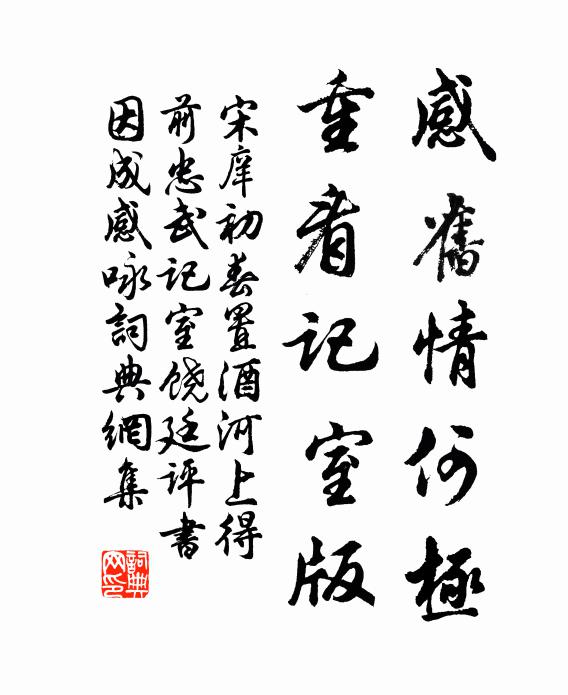 感舊情何極
重看記室版
宋庠初春置酒河上得
前忠武記室饒廷評書
因成感咏詞典網集
詞典网印